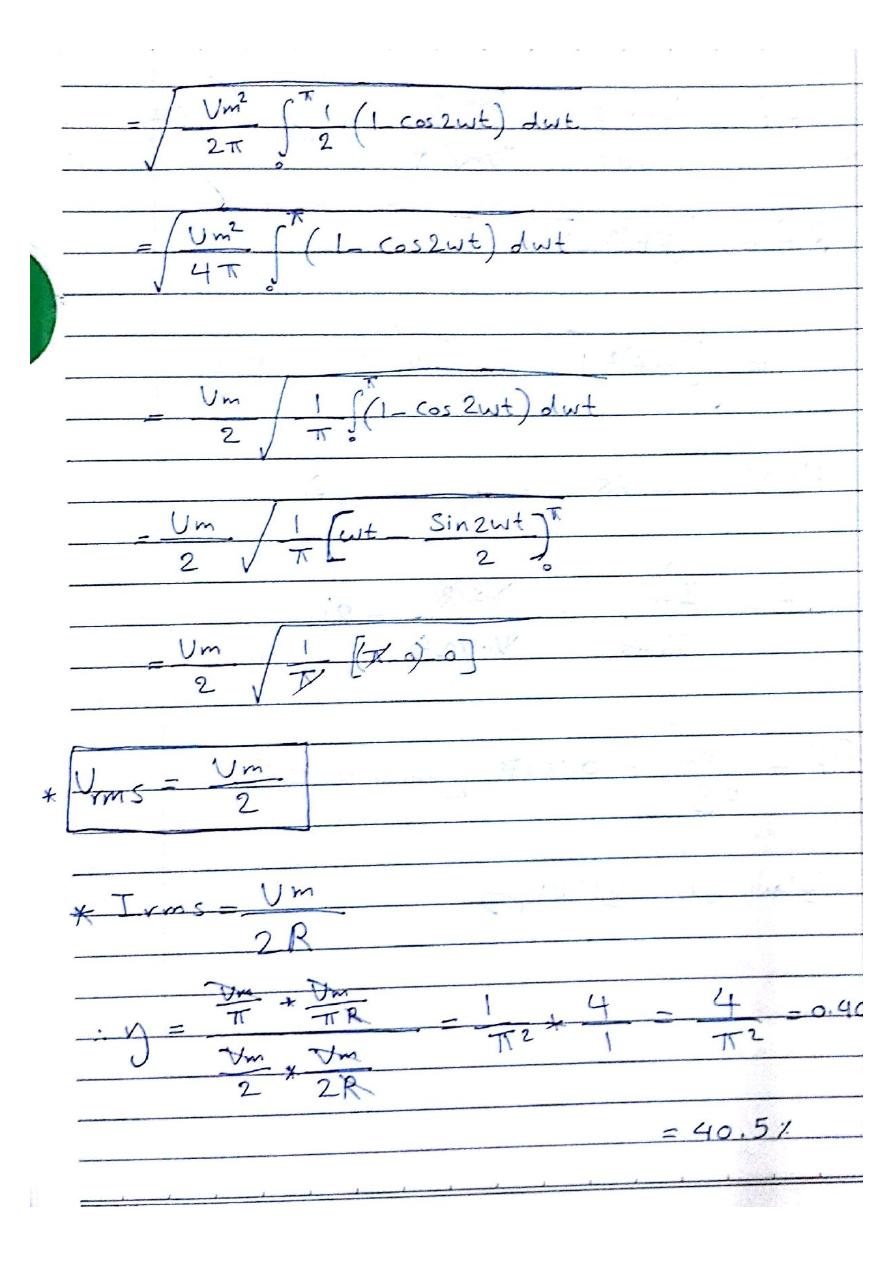 = √( Vm²/2π ∫₀^π 1/2 (1 - cos 2wt) dwt
= √( Vm²/4π ∫₀^π (1 - cos 2wt) dwt
= Vm/2 √( 1/π ∫₀^π (1 - cos 2wt) dwt
= Vm/2 √( 1/π [wt - Sin 2wt/2]₀^π
= Vm/2 √( 1/π [(π - 0) - 0]
* Vrms = Vm/2
* Irms = Vm/2R
∴ η = (Vm/π * Vm/πR)/(Vm/2 * Vm/2R) = 1/π² * 4/1 = 4/π² = 0.40
= 40.5%